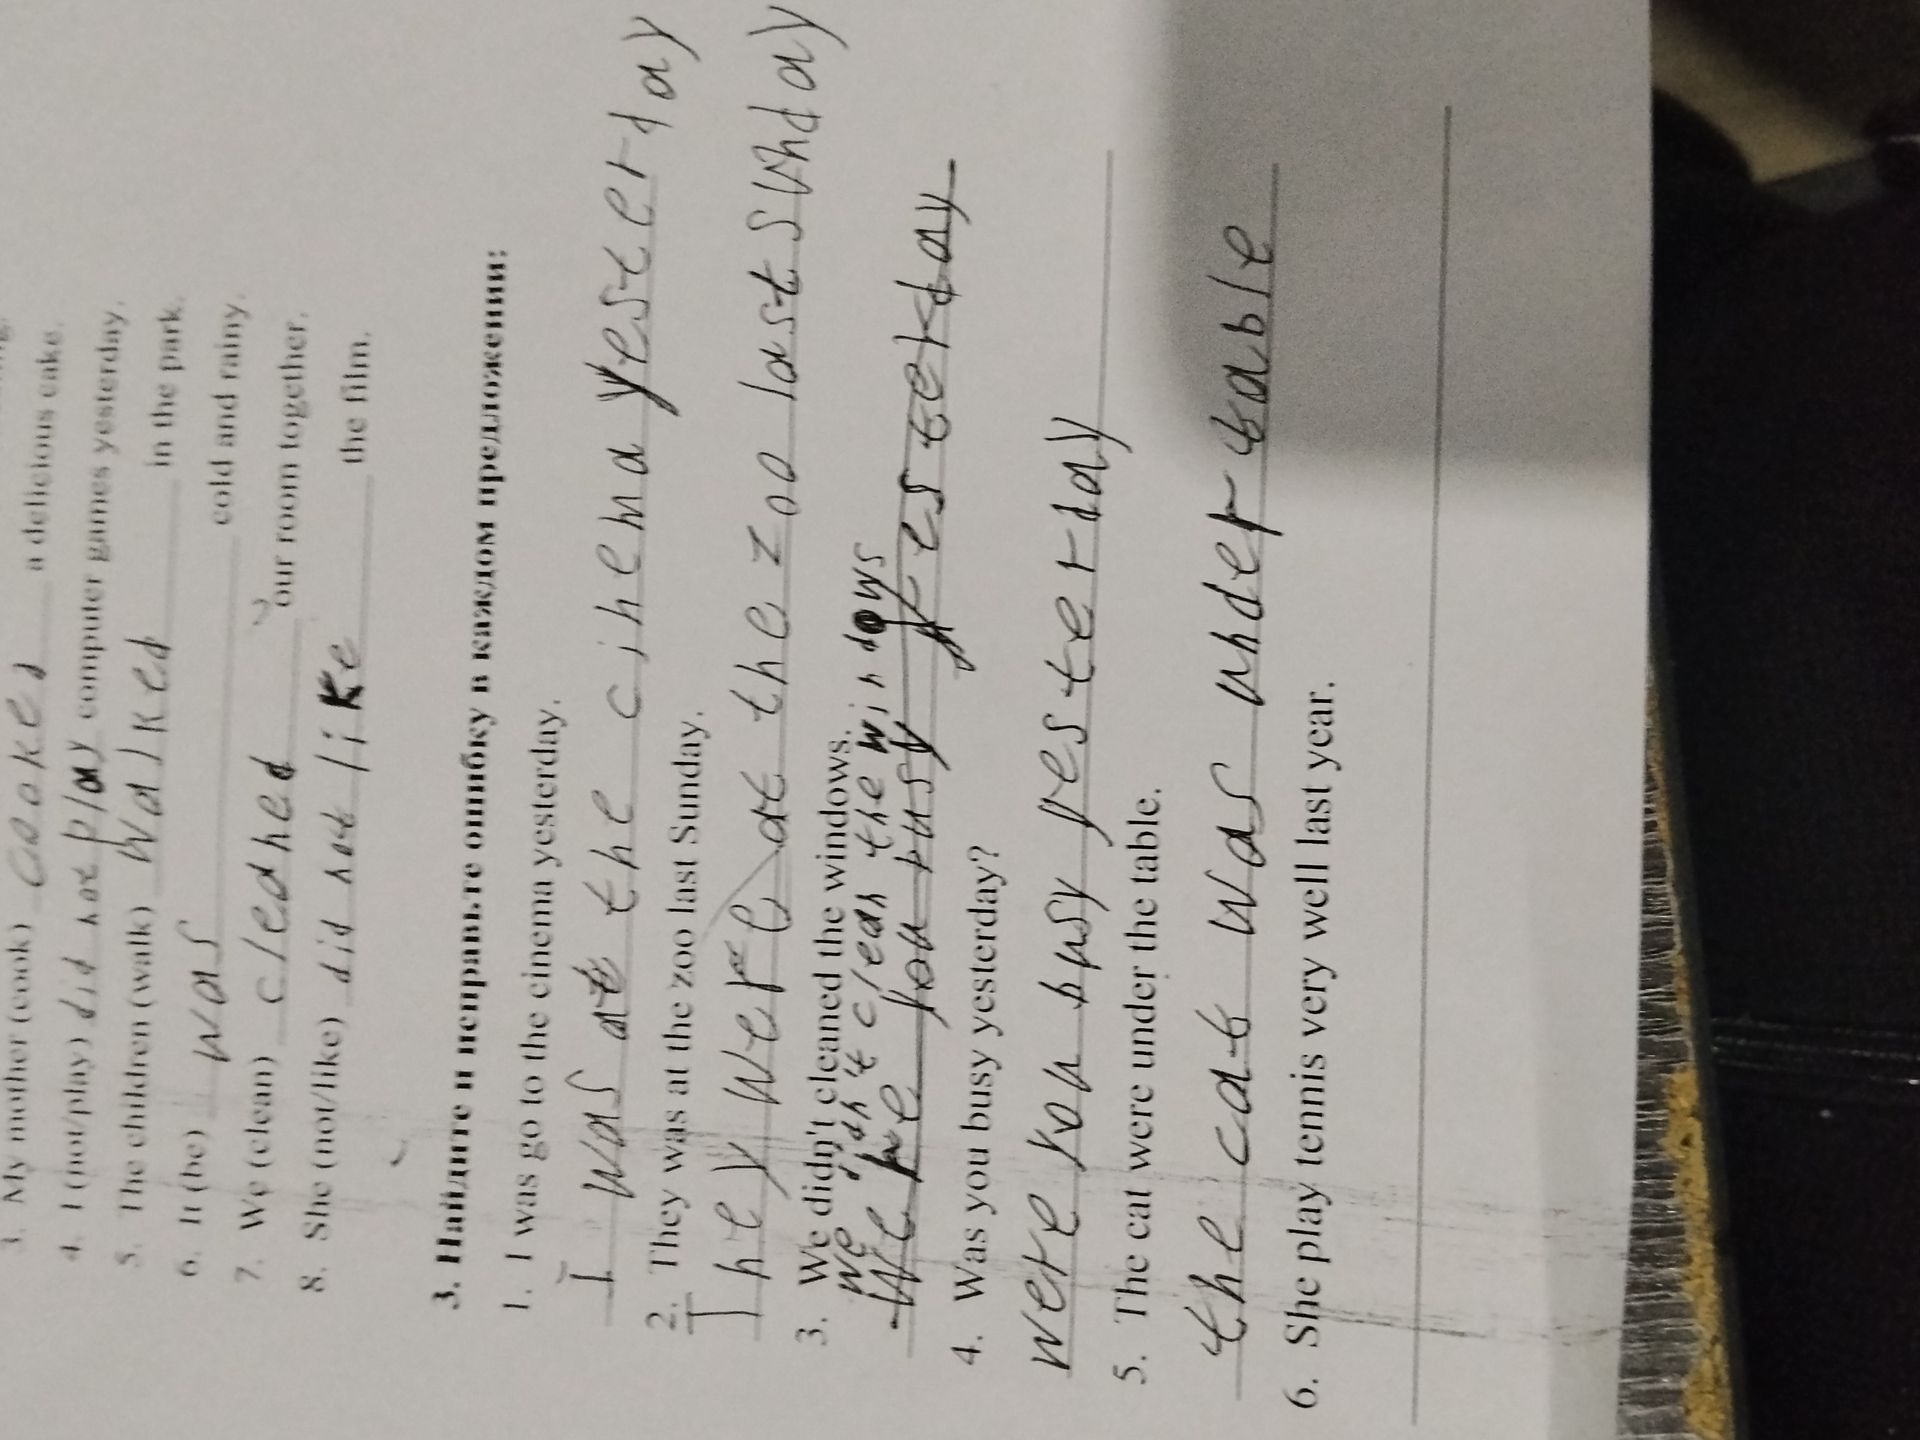 3. My mother (cook) cooked a delicious cake.
4. I (not/play) did not play computer games yesterday.
5. The children (walk) walked in the park.
6. It (be) was cold and rainy.
7. We (clean) cleaned our room together.
8. She (not/like) did not like the film.
3. Найдите и исправьте ошибку в каждом предложении:
1. I was go to the cinema yesterday.
I was at the cinema yesterday
2. They was at the zoo last Sunday.
They were at the zoo last sunday
3. We didn't cleaned the windows.
We didn't clean the windows
We we you busy yesterday
4. Was you busy yesterday?
were you busy yesterday
5. The cat were under the table.
the cat was under table
6. She play tennis very well last year.